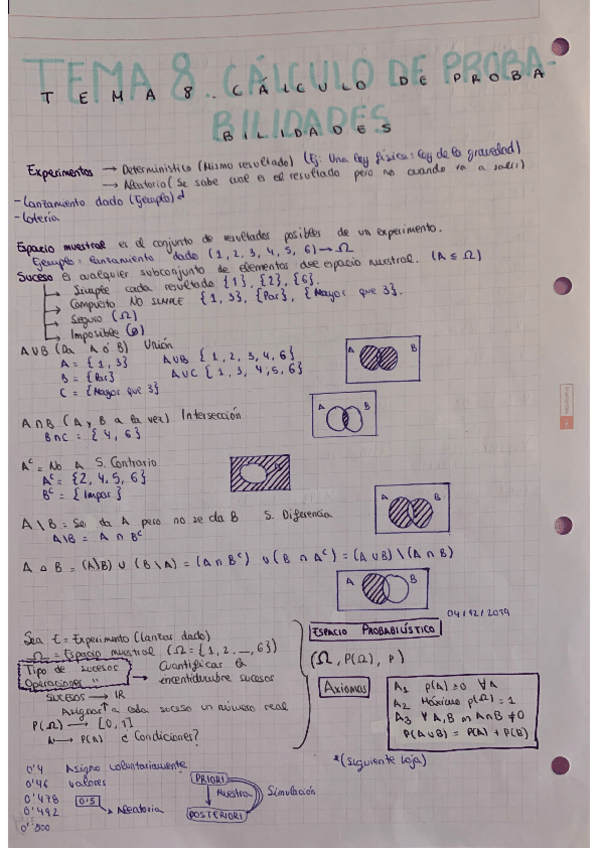 TEMA 8. CÁLCULO DE PROBA-
BILIDADES
TEMA 8. CÁLCULO DE PROBA
BILIDADES
Experimentos → Determinístico (Mismo resultado) (Ej: Una ley física: ley de la gravedad)
→ Aleatorio (Se sabe cual es el resultado pero no cuando va a salir)
- Lanzamiento dado (Ejemplo)
- Lotería
Espacio muestral es el conjunto de resultados posibles de un experimento.
Ejemplo: lanzamiento dado (1, 2, 3, 4, 5, 6) → Ω
Suceso es cualquier subconjunto de elementos dse espacio muestral. (A ⊆ Ω)
→ Simple cada resultado {1}, {2}, {6}.
→ Compuesto NO SIMPLE {1, 3}, {Par}, {Mayor que 3}.
→ Seguro (Ω)
→ Imposible (ø)
A∪B (Da A ó B) Unión
A = {1, 3} A∪B {1, 2, 3, 4, 6}
B = {Par} A∪C {1, 3, 4, 5, 6}
C = {Mayor que 3}
A B
A∩B (A y B a la vez) Intersección
B∩C = {4, 6}
A B
Aᶜ = No A S. Contrario
Aᶜ = {2, 4, 5, 6}
Bᶜ = {Impar}
A B
A\B = Se da A pero no se da B S. Diferencia
A\B = A ∩ Bᶜ
A △ B = (A\B) ∪ (B\A) = (A ∩ Bᶜ) ∪ (B ∩ Aᶜ) = (A ∪ B) \ (A ∩ B)
A B
04/12/2019
Sea E = Experimento (lanzar dado)
Ω = Espacio muestral (Ω = {1, 2, ..., 6})
Tipo de sucesos → Cuantificar la
Operaciones " incentidumbre sucesos
SUCESOS → IR
Asignar a cada suceso un número real
P(Ω) → [0, 1]
A → P(A) ¿Condiciones?
ESPACIO PROBABILÍSTICO
(Ω, P(Ω), P)
Axiomas
A1 p(A) ≥ 0 ∀A
A2 Máximo p(Ω) = 1
A3 ∀ A, B m A∩B ≠ 0
P(A∪B) = P(A) + P(B)
*(Siguiente hoja)
0'4 Asigno voluntariamente
0'46 valores
0'478 0'5
0'492 → Aleatoria
0'500
PRIORI
Muestra Simulación
POSTERIORI